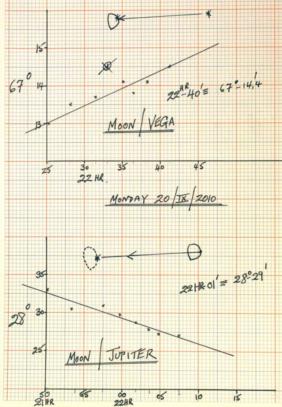 15
67°
14
22ᴴᴿ-40' = 67°-14,4
13
MOON/VEGA
25 30 35 40 45
22 HR.
MONDAY 20/IX/2010
35
22HR 01' = 28°-29'
28°
30
25
MOON/JUPITER
50 55 00 05 10 15
21HR 22HR